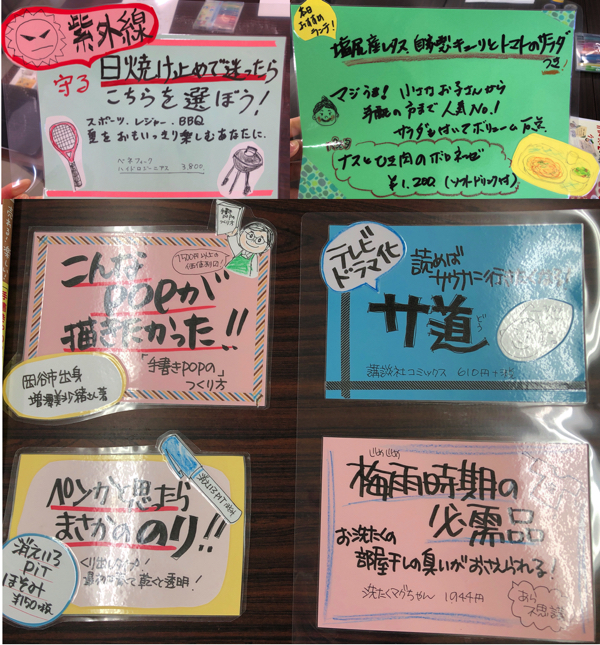 紫外線
守る
日焼け止めで迷ったら
こちらを選ぼう!
スポーツ、レジャー、BBQ
夏をおもいっきり楽しむあなたに。
3,800
本日
おすすめ
ランチ!
塩尻産レタス 自家製キューリとトマトのサラダ
つき!
マジうま! 小さな お子さんから
年配の方まで人気No.1
サラダも付いてボリューム満点
ナスとひき肉のボロネーゼ
¥1,200 (ソフトドリンク付)
こんな
POPが
描きたかった!!
「手書きPOPの
つくり方」
1,500円以上の
価値あり!
岡谷市出身
増澤美沙緒さん著
テレビ
ドラマ化
読めば
サウナに行き
サ道
どう
講談社コミックス 610円+税
ペンかと思ったら
まさかの のり!!
乾くと透明!
消えいろPIT
消えいろ
PiT
ほそみ
¥150+税
じめじめ
梅雨時期の
必需品
お洗たくの
部屋干しの臭いがおさえられる!
洗たくマグちゃん 1944円
あら
不思議